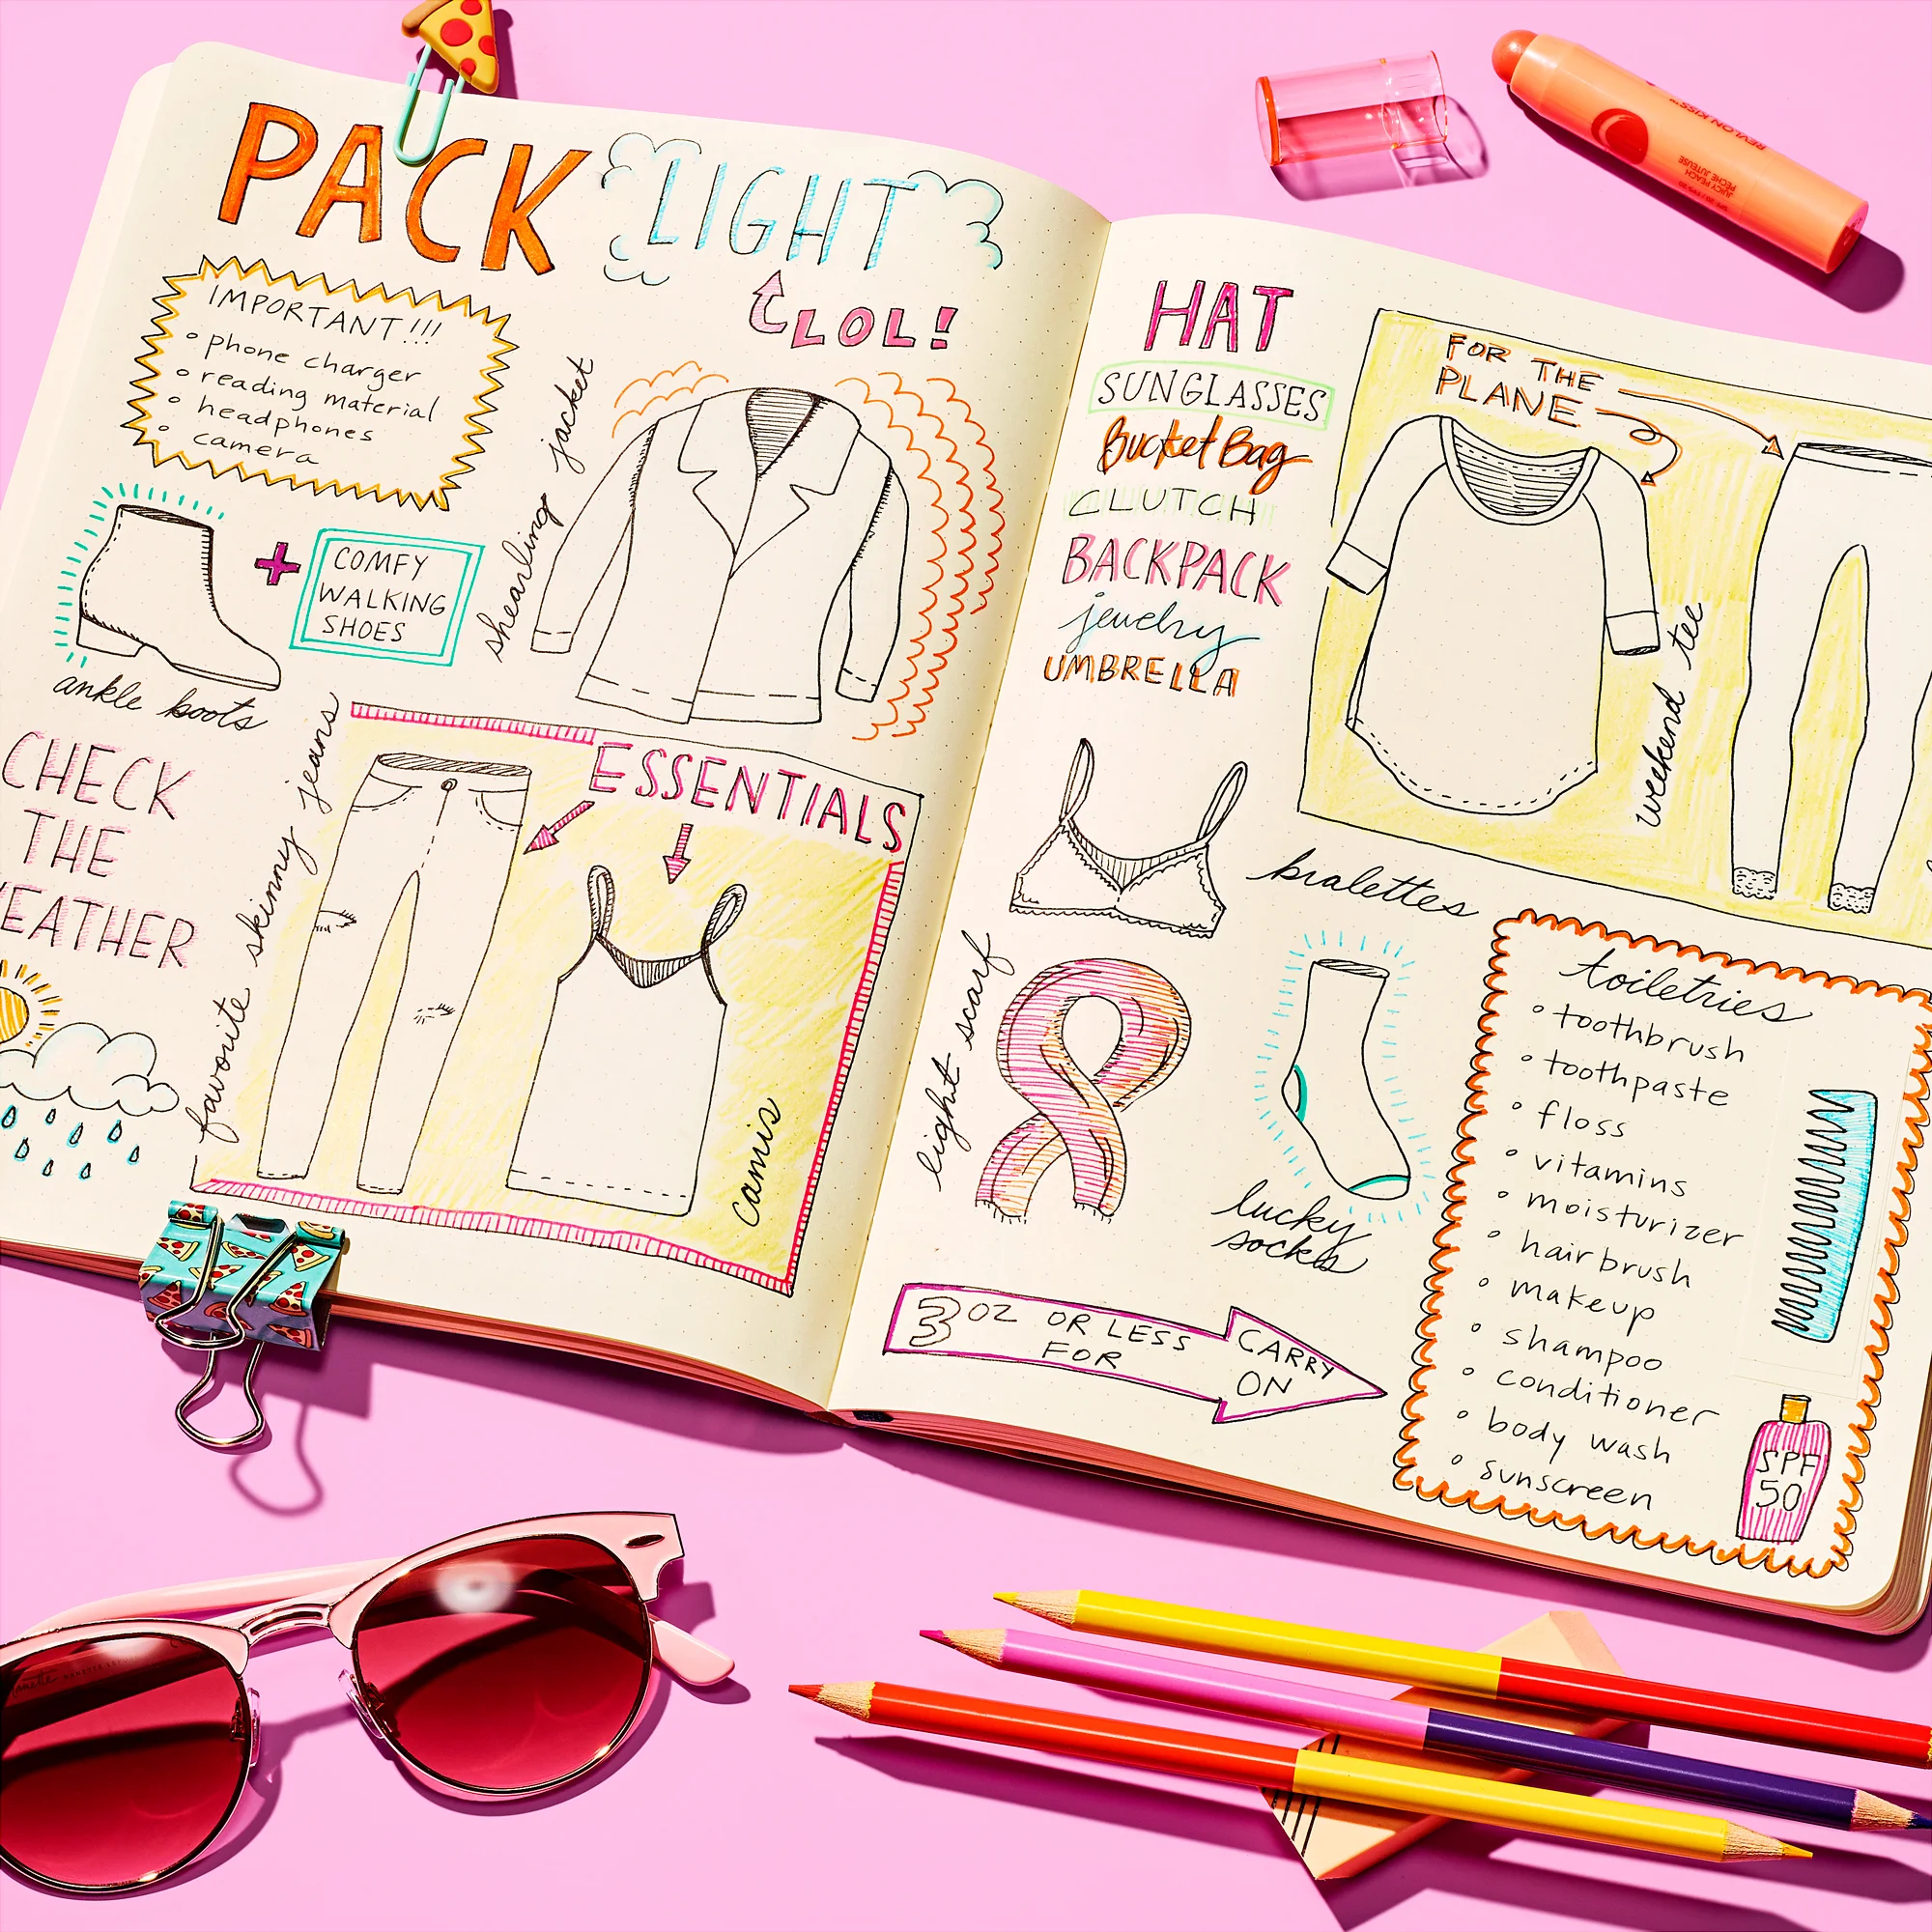 PACK LIGHT
LOL!
IMPORTANT!!!
phone charger
reading material
headphones
camera
shearling jacket
+ COMFY
WALKING
SHOES
ankle boots
CHECK
THE
EATHER
favorite skinny jeans
ESSENTIALS
camis
HAT
SUNGLASSES
Bucket Bag
CLUTCH
BACKPACK
jewelry
UMBRELLA
FOR THE
PLANE
weekend tee
bralettes
light scarf
lucky
socks
3 OZ OR LESS
FOR
CARRY
ON
toiletries
toothbrush
toothpaste
floss
vitamins
moisturizer
hairbrush
makeup
shampoo
conditioner
body wash
sunscreen
SPF
50
REVLON KISS™
JUICY PEACH
PÊCHE JUTEUSE